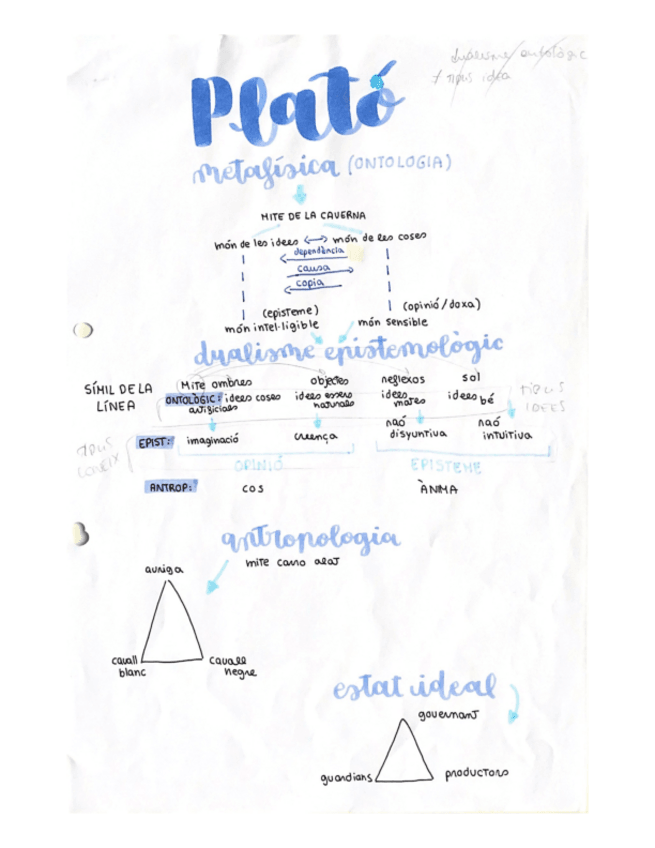 dualisme ontològic
≠ tipus idea
Plató
metafísica (ONTOLOGIA)
MITE DE LA CAVERNA
món de les idees ↔ món de les coses
dependència
causa
copia
(episteme) (opinió/doxa)
món intel·ligible món sensible
dualisme epistemològic
SÍMIL DE LA LÍNEA
Mite ombres objectes reflexos sol
ONTOLÒGIC: idees coses artificials idees essers naturals idees mates idees bé
TIPUS IDEES
EPIST: imaginació creença raó disyuntiva raó intuitiva
TIPUS CONEIX
OPINIÓ EPISTEME
ANTROP: COS ÀNIMA
antropologia
mite carro alat
auriga
cavall blanc cavall negre
estat ideal
governant
guardians productors